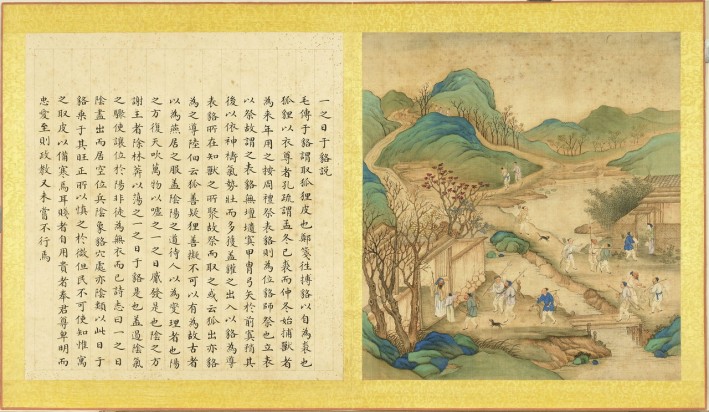 一之日于貉說
毛傳于貉謂取狐狸皮也鄭箋往搏貉以自為裘也
狐狸以衣尊者孔疏謂孟冬已裘而仲冬始捕獸者
為來年用之按周禮祭表貉則為位師祭也立表
以祭故謂之表貉無壇壝寘甲冑弓矢於前寘矟其
後以依神禱氣勢壯而多獲蓋獵之出入以貉為導
表貉所在知獸之所聚故祭而取之或云狐出亦貉
為之導陸佃云狐善疑狸善擬不可以有為故古者
以為燕居之服蓋陰陽之道待人以為變理者也陽
之方復天吹萬物以噓之一之日觱發是也陰之方
謝王者除林莽以蕩之一之日于貉是也蓋過陰氣
之驟使讓位於陽非徒為無衣而已詩志曰一之日
陰盡出而居空位與陰象貉穴處亦陰類以此日于
貉乘于其旺正所以慎之於微但民不可使知惟寓
之取皮以備寒焉耳賤者自用貴者奉君尊卑明而
忠愛至則政教又未嘗不行焉